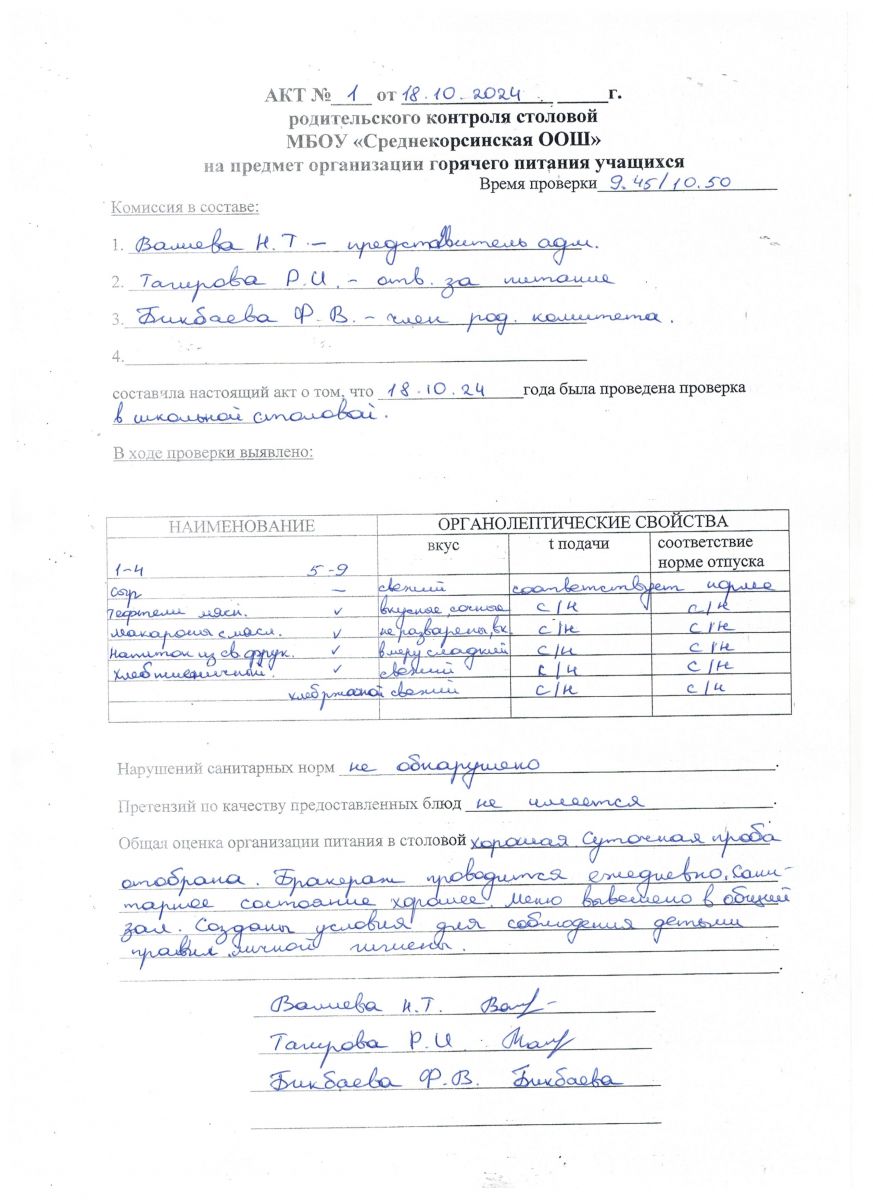 АКТ № 1 от 18.10.2024 г.
родительского контроля столовой
МБОУ «Среднекорсинская ООШ»
на предмет организации горячего питания учащихся
Время проверки 9.45/10.50
Комиссия в составе:
1. Валиева Н.Т – представитель адм.
2. Тагирова Р.И. – отв. за питание
3. Бикбаева Ф.В. – член род. комитета.
4.
составила настоящий акт о том, что 18.10.24 года была проведена проверка
в школьной столовой.
В ходе проверки выявлено:
НАИМЕНОВАНИЕ ОРГАНОЛЕПТИЧЕСКИЕ СВОЙСТВА
вкус t подачи соответствие
1-4 5-9 норме отпуска
сыр – свежий соответствует норме
тефтели мясн. ✓ вкусные сочные с/н с/н
макароны с масл. ✓ не разварены, вк. с/н с/н
напиток из св фрук. ✓ в меру сладкий с/н с/н
хлеб пшеничный. ✓ свежий с/н с/н
хлеб ржаной свежий с/н с/н
Нарушений санитарных норм не обнаружено.
Претензий по качеству предоставленных блюд не имеется.
Общая оценка организации питания в столовой хорошая Суточная проба
отобрана. Бракераж проводится ежедневно. Сани-
тарное состояние хорошее. Меню вывешено в общий
зал. Созданы условия для соблюдения детьми
правил личной гигиены.
Валиева Н.Т.
Тагирова Р.И.
Бикбаева Ф.В. Бикбаева